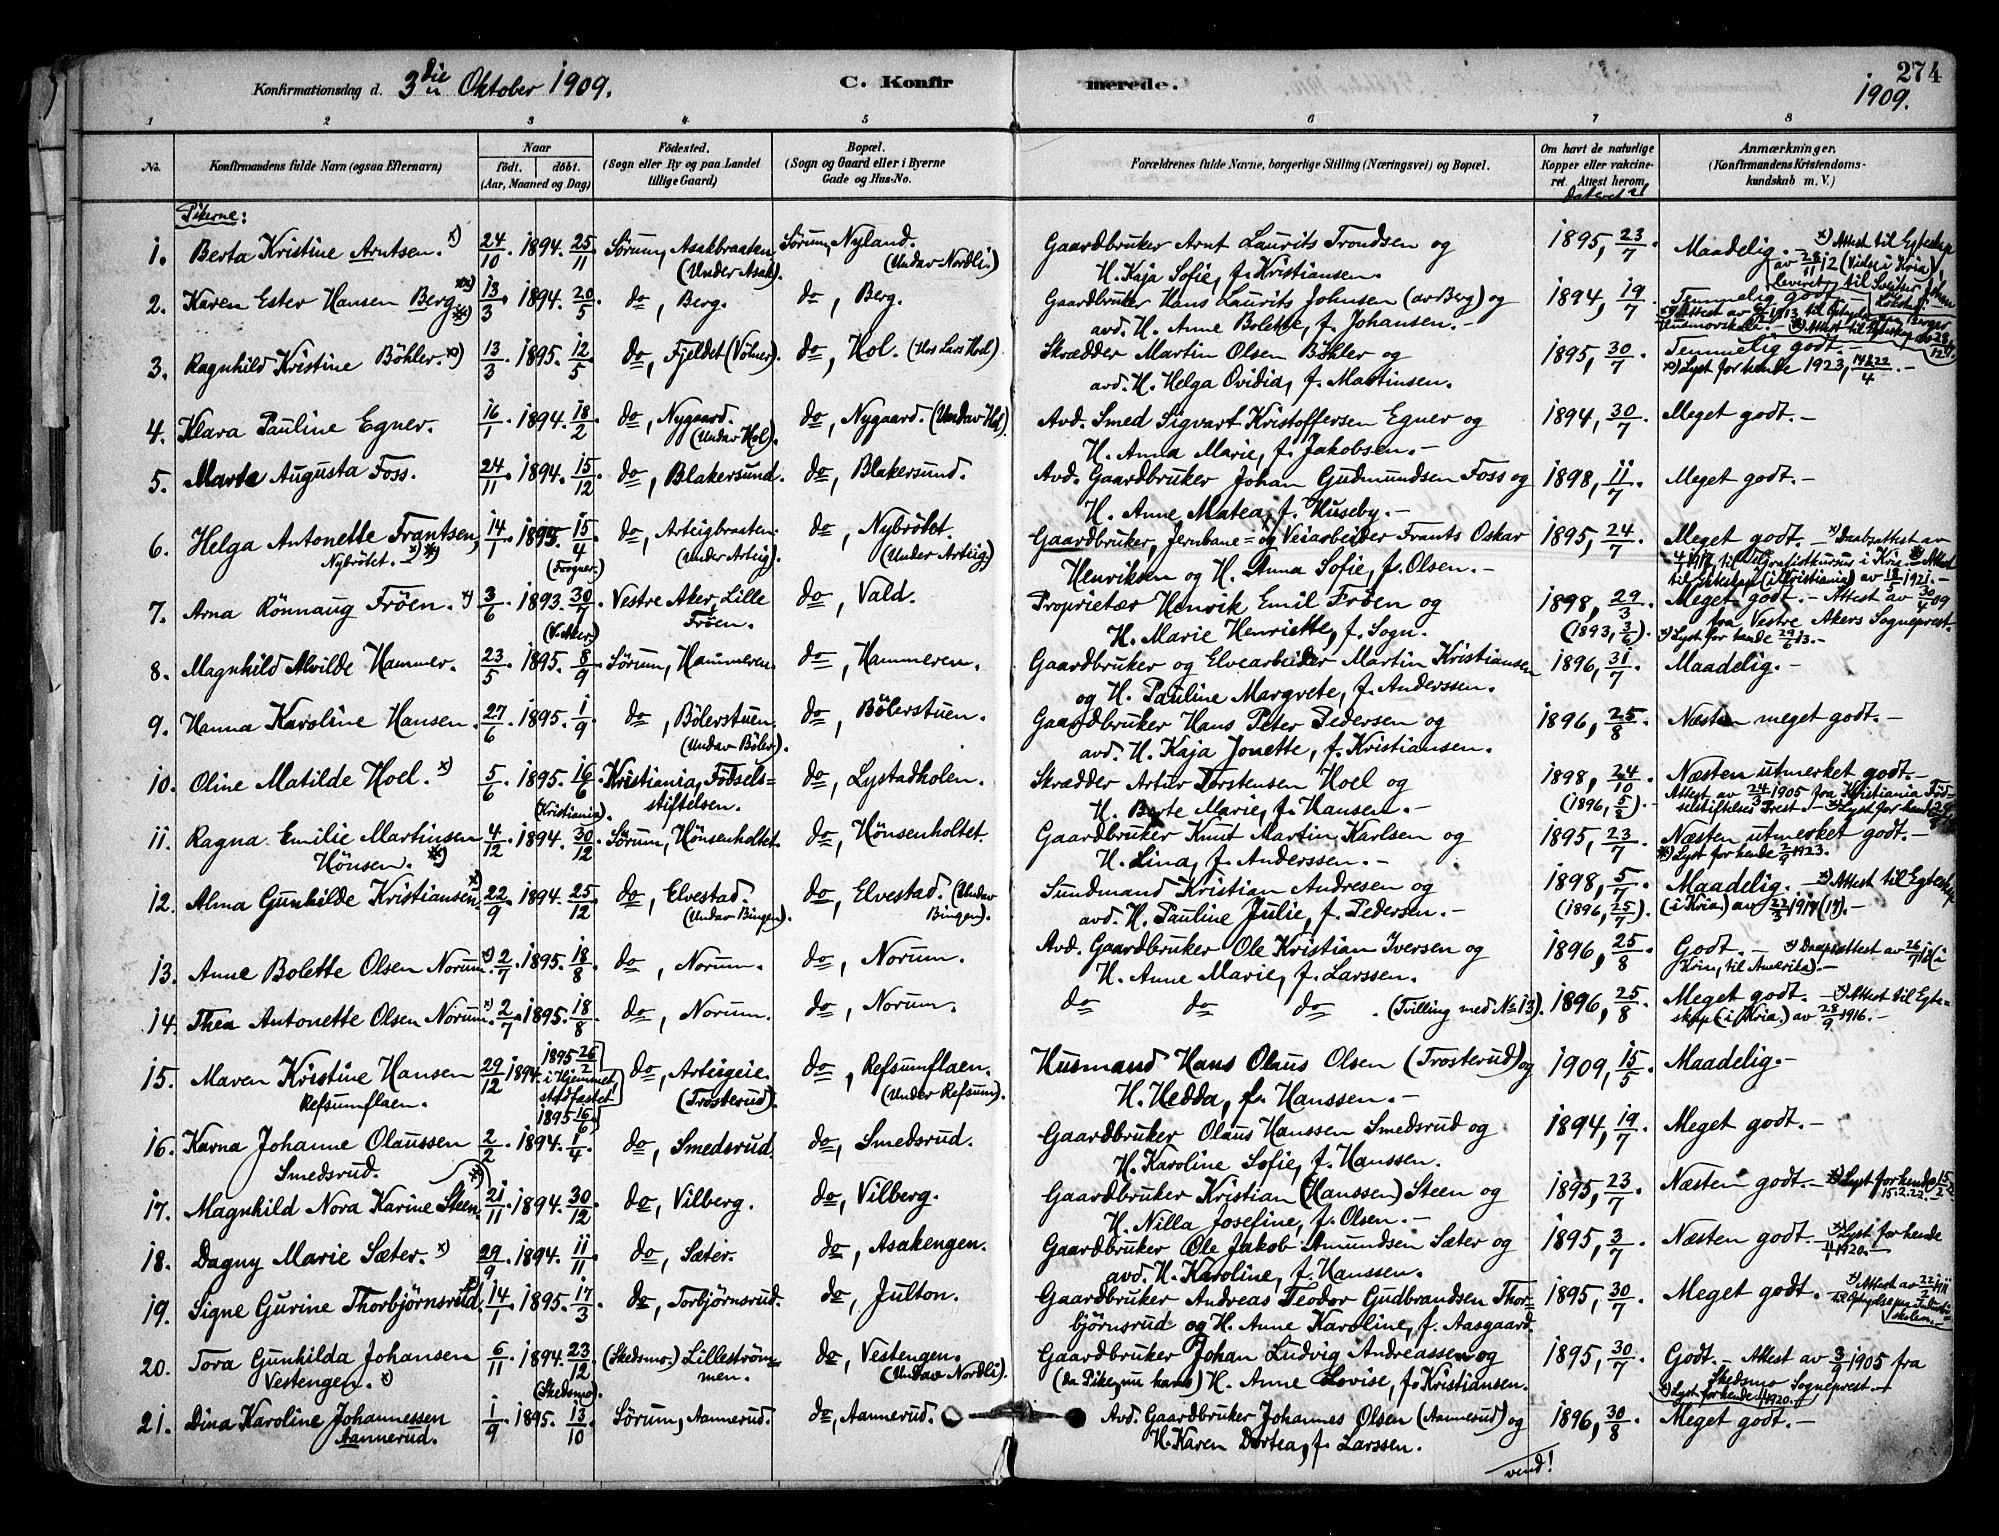 274
Konfirmationsdag d. 3die Oktober 1909. C. Konfirmerede. 1909.
1 2 3 4 5 6 7 8
No. Konfirmandens fulde Navn (ogsaa Efternavn) Naar født. døbt. (Aar, Maaned og Dag) Fødested. (Sogn eller By og paa Landet tillige Gaard) Bopæl. (Sogn og Gaard eller i Byerne Gade og Hus-No. Forældrenes fulde Navne, borgerlige Stilling (Næringsvei) og Bopæl. Om havt de naturlige Kopper eller vakcineret. Attest herom dateret Anmærkninger. (Konfirmandens Kristendomskundskab m. V.)
Pikerne:
1. Berta Kristine Arntsen. x) 24/10. 1894. 25/11. Sørum, Asakbraaten (Under Asak). Sørum, Nyland. (Undav Nordli.) Gaardbruker Arnt Laurits Trondsen og 1895, 23/7. Maadelig. – x) Attest til Egteskap
H. Kaja Sofie, f. Kristiansen. av 28/11 12 (Vielse i Kria)
2. Karen Ester Hansen Berg. 13/3. 1894. 20/5. do, Berg. do, Berg. Gaardbruker Hans Laurits Johnsen (av Berg) og 1894, 19/7 Temmelig godt
avd. H. Anne Bolette, f. Johansen. –
3. Ragnhild Kristine Böhler. x) 13/3. 1895. 12/5 do, Fjeldet (Vølner). do, Hol. (Hos Lars Hol) Skrædder Martin Olsen Böhler og 1895, 30/7 Temmelig godt. –
avd. H. Helga Ovidia, f. Martinsen. x) Lyst for hende 1923,
4. Klara Pauline Egner. 16/1. 1894. 18/2. do, Nygaard. (Undav Hol) do, Nygaard. (Undav Hol) Avd. Smed Sigvart Kristoffersen Egner og 1894, 30/7 Meget godt. –
H. Anna Marie, f. Jakobsen. –
5. Marta Augusta Foss. 24/11. 1894. 15/12 do, Blakersund. do, Blakersund. Avd. Gaardbruker Johan Gudmundsen Foss og 1898, 11/7. Meget godt. –
H. Anne Matea, f. Huseby. –
6. Helga Antonette Frantsen, 14/1. 1895. 15/4 do, Arteigbraaten (Under Arteig). do, Nybrøtet. (Under Arteig) Gaardbruker, Jernbane= og Veiarbeider Frants Oskar 1895, 24/7 Meget godt. –
Nybrøtet. (Frogner.) Henriksen og H. Anna Sofie, f. Olsen. – til Egteskap (i Kristiania) av 18/5 1921. –
7. Arna Rönnaug Fröen. x) 3/6. 1893. 30/7. (V. Aker.) Vestre Aker, Lille Frøen. do, Vald. Proprietær Henrik Emil Frøen og 1898, 29/3. (1893, 3/6) Meget godt. – Attest av 30/4 09
H. Marie Henriette, f. Sogn. fra Vestre Akers Sogneprest. x) Lyst for hende 29/6 13. –
8. Magnhild Alvilde Hammer. 23/5. 1895. 8/9. Sørum, Hammeren. do, Hammeren. Gaardbruker og Elvearbeider Martin Kristiansen 1896, 31/7 Maadelig. –
og H. Pauline Margrete, f. Anderssen.
9. Hanna Karoline Hansen. 27/6. 1895. 1/9. do, Bölerstuen. (Undav Böler). do, Bölerstuen. Gaardbruker Hans Peter Pedersen og 1896, 25/8 Næsten meget godt. –
avd. H. Kaja Jonette, f. Kristiansen.
10. Oline Matilde Hoel. x) 5/6. 1895. 16/6. (Kristiania) Kristiania, Fødselsstiftelsen. do, Lystadholen. Skrædder Artur Torstensen Hoel og 1898, 24/10 (1896, 5/8). Næsten utmerket godt. –
H. Berte Marie, f. Hansen. – Attest av 24/3 1905 fra Kristiania Fødselsstiftelses Prest. – x) Lyst for hende
11. Ragna Emilie Martinsen 4/12. 1894. 30/12 Sørum, Hönsenholtet. do, Hönsenholtet. Gaardbruker Knut Martin Karlsen og 1895, 23/7. Næsten utmerket godt. –
Hönsen. x) H. Lina, f. Anderssen. – x) Lyst for hende 2/9 1923.
12. Alma Gunhilde Kristiansen. x) 22/9. 1894. 25/12. do, Elvestad. (Undav Bingen). do, Elvestad. (Undav Bingen). Sundmand Kristian Andresen og 1898, 5/7 (1896, 25/7). Maadelig. – x) Attest til Egteskap
avd. H. Pauline Julie, f. Pedersen. – (i Kria.) av 22/3 1917 (17).
13. Anne Bolette Olsen Norum. x) 2/7. 1895. 18/8 do, Norum. do, Norum. Avd. Gaardbruker Ole Kristian Iversen og 1896, 25/8 Godt. –
H. Anne Marie, f. Larssen. til Amerika). –
14. Thea Antonette Olsen Norum. x) 2/7. 1895. 18/8 do, Norum. do, Norum. do do do (Tvilling med No 13). 1896, 25/8 Meget godt. – x) Attest til Egteskap (i Kria.) av 28/9 1916. –
15. Maren Kristine Hansen 29/12 1894. 1895 26/2 i Hjemmet stadfæstet 1895 16/6 do, Arteigeie. (Trosterud). do, Refsumflaen. (Under Refsum). Husmand Hans Olaus Olsen (Trosterud) og 1909, 15/5. Maadelig. –
Refsumflaen. H. Hedda, f. Hanssen. –
16. Karna Johanne Olaussen 2/2. 1894. 1/4. do, Smedsrud. do, Smedsrud. Gaardbruker Olaus Hanssen Smedsrud og 1894, 19/7 Meget godt. –
Smedsrud. H. Karoline Sofie, f. Hanssen.
17. Magnhild Nora Karine Steen. x) 21/11. 1894. 30/12 do, Vilberg. do, Vilberg. Gaardbruker Kristian (Hanssen) Steen og 1895, 23/7 Næsten godt. – x) Lyst for hende 15.2.22.
H. Nilla Josefine, f. Olsen. –
18. Dagny Marie Sæter. x) 29/9. 1894. 11/11. do, Sæter. do, Asakengen. Gaardbruker Ole Jakob Amundsen Sæter og 1895, 3/7 Næsten godt. – x) Lyst for hende 1920. –
avd. H. Karoline, f. Hanssen.
19. Signe Gurine Thorbjørnsrud. 14/1. 1895. 17/3. do, Torbjørnsrud. do, Julton. Gaardbruker Andreas Teodor Gudbrandsen Thor= 1895, 30/7 Meget godt. –
bjørnsrud og H. Anne Karoline, f. Aasgaard.
20. Tora Gunhilda Johansen 6/11. 1894. 23/12. (Skedsmo). (Skedsmo.) Lillestrømmen. do, Vestengen. (Undav Nordli). Gaardbruker Johan Ludvig Andreassen og 1895, 30/7 Godt. – Attest av 3/9 1905 fra
Vestengen. x) (da Pike, nu hans) H. Anne Lovise, f. Kristiansen. Skedsmo Sogneprest. – x) Lyst for hende 1920.
21. Dina Karoline Johannessen 1/9. 1895. 13/10 Sørum, Aannerud. do, Aannerud. Avd. Gaardbruker Johannes Olsen (Aannerud) og 1896, 30/8 Meget godt. –
Aannerud. H. Karen Dortea, f. Larssen.
vend!